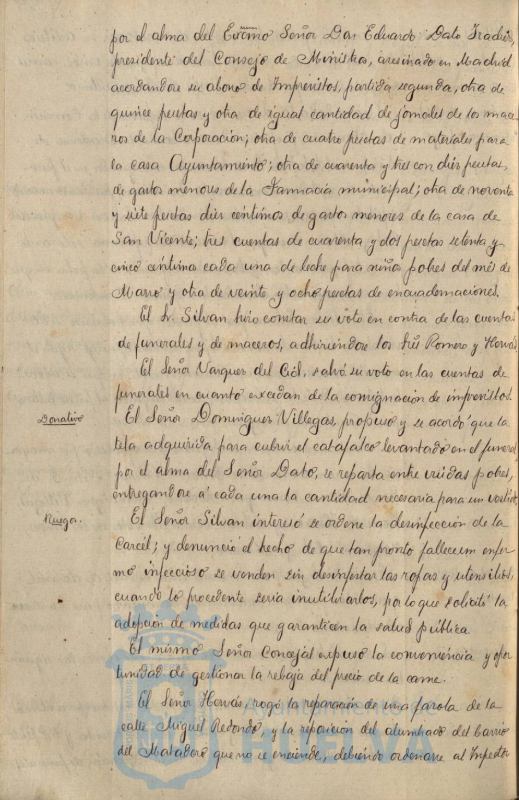 por el alma del Excmo Señor Don Eduardo Dato Iradier,
presidente del Consejo de Ministros, asesinado en Madrid
acordandose su abono de Imprevistos, partida segunda, otra de
quince pesetas y otra de igual cantidad de jornales de los mace
ros de la Corporación; otra de cuatro pesetas de materiales para
la casa Ayuntamiento; otra de cuarenta y tres con diez pesetas,
de gastos menores de la Farmacia municipal; otra de noventa
y siete pesetas diez céntimos de gastos menores de la casa de
San Vicente; tres cuentas de cuarenta y dos pesetas setenta y
cinco céntimo cada una de leche para niños pobres del mes de
Marzo y otra de veinte y ocho pesetas de encuadernaciones.
El Sr. Silvan hizo constar su voto en contra de las cuentas
de funerales y de maceros, adhiriendose los Sres Romero y Horvás
El Señor Vazquez del Cid, salvó su voto en las cuentas de
funerales en cuanto excedan de la consignación de imprevistos.
Donativo
El Señor Dominguez Villegas, propuso y se acordó que la
tela adquirida para cubrir el catafalco levantado en el funeral
por el alma del Señor Dato, se reparta entre viudas pobres,
entregandose á cada una la cantidad necesaria para un vestido.
Ruegos.
El Señor Silvan interesó se ordene la desinfección de la
Carcel; y denunció el hecho de que tan pronto fallecen enfer
mo infeccioso se venden sin desinfestar las ropas y utensilios,
cuando lo procedente seria inutilizarlos, por lo que solicitó la
adopción de medidas que garanticen la salud pública.
El mismo Señor Concejal expuso la conveniencia y opor
tunidad de gestionar la rebaja del precio de la carne.
El Señor Horvás, rogó la reparación de una farola de la
calle Miguel Redondo, y la reparición del alumbrado del barrio
del Matadero que no se enciende, debiendo ordenarse al Inspector
Ayuntamiento
HUELVA